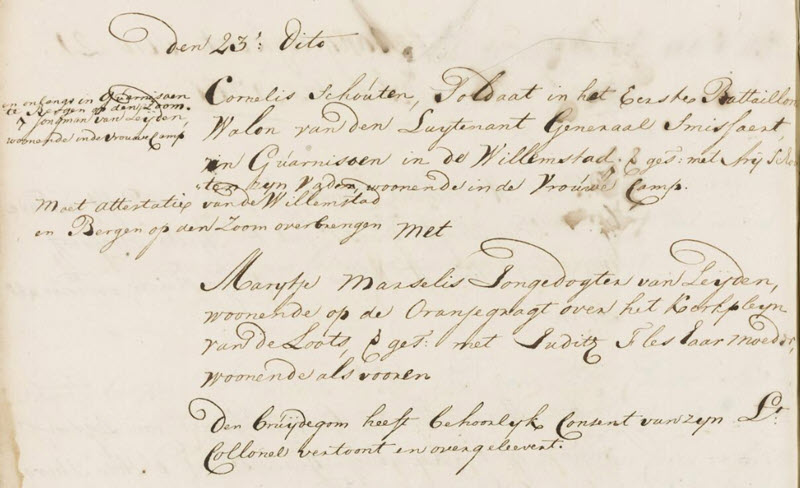 den 23: Dito
en onlangs in Guarnisoen
te Bergen op den Zoom.
Jongman van Leyden,
woonende inde vrouwe Camp
Cornelis Schouten, Soldaat in het Eerste Battaillon
Walon van den Luytenant Generaal Smissaert
in Guarnisoen in de Willemstad. & gest: met Arij Schou
ten zyn Vader, woonende in de Vrouwe Camp.
Moet attestatie van de Willemstad
en Bergen op den Zoom overbrengen
met
Marytje Marselis Jongedogter van Leyden,
woonende op de Oranjegragt over het Kerkpleyn
van de Loots, & gest: met Judith Fles haar moeder,
woonende als vooren
Den bruydegom heeft behoorlyk Consent van zyn Lt.
Collonel vertoont en overgeleevert.